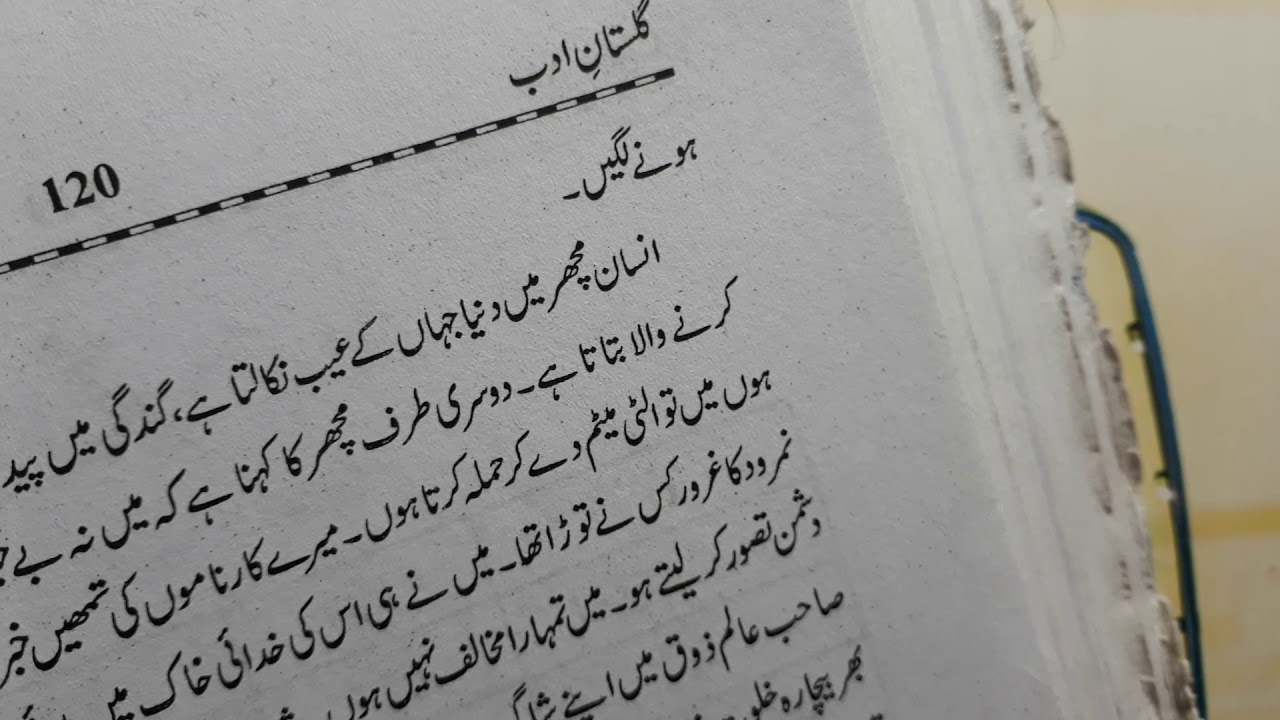 گلستانِ ادب
120
ہونے لگیں۔
انسان مچھر میں دنیا جہاں کے عیب نکالتا ہے، گندگی میں
کرنے والا بتاتا ہے۔ دوسری طرف مچھر کا کہنا ہے کہ میں نہ
ہوں میں تو الٹی میٹم دے کر حملہ کرتا ہوں۔ میرے کارناموں کی تمھیں خبر
نمرود کا غرور کس نے توڑا تھا۔ میں نے ہی اس کی خدائی خاک میں
دشمن تصور کر لیتے ہو۔ میں تمہارا مخالف نہیں ہوں
صاحب عالم ذوق میں اپنے
بھر بیچارہ